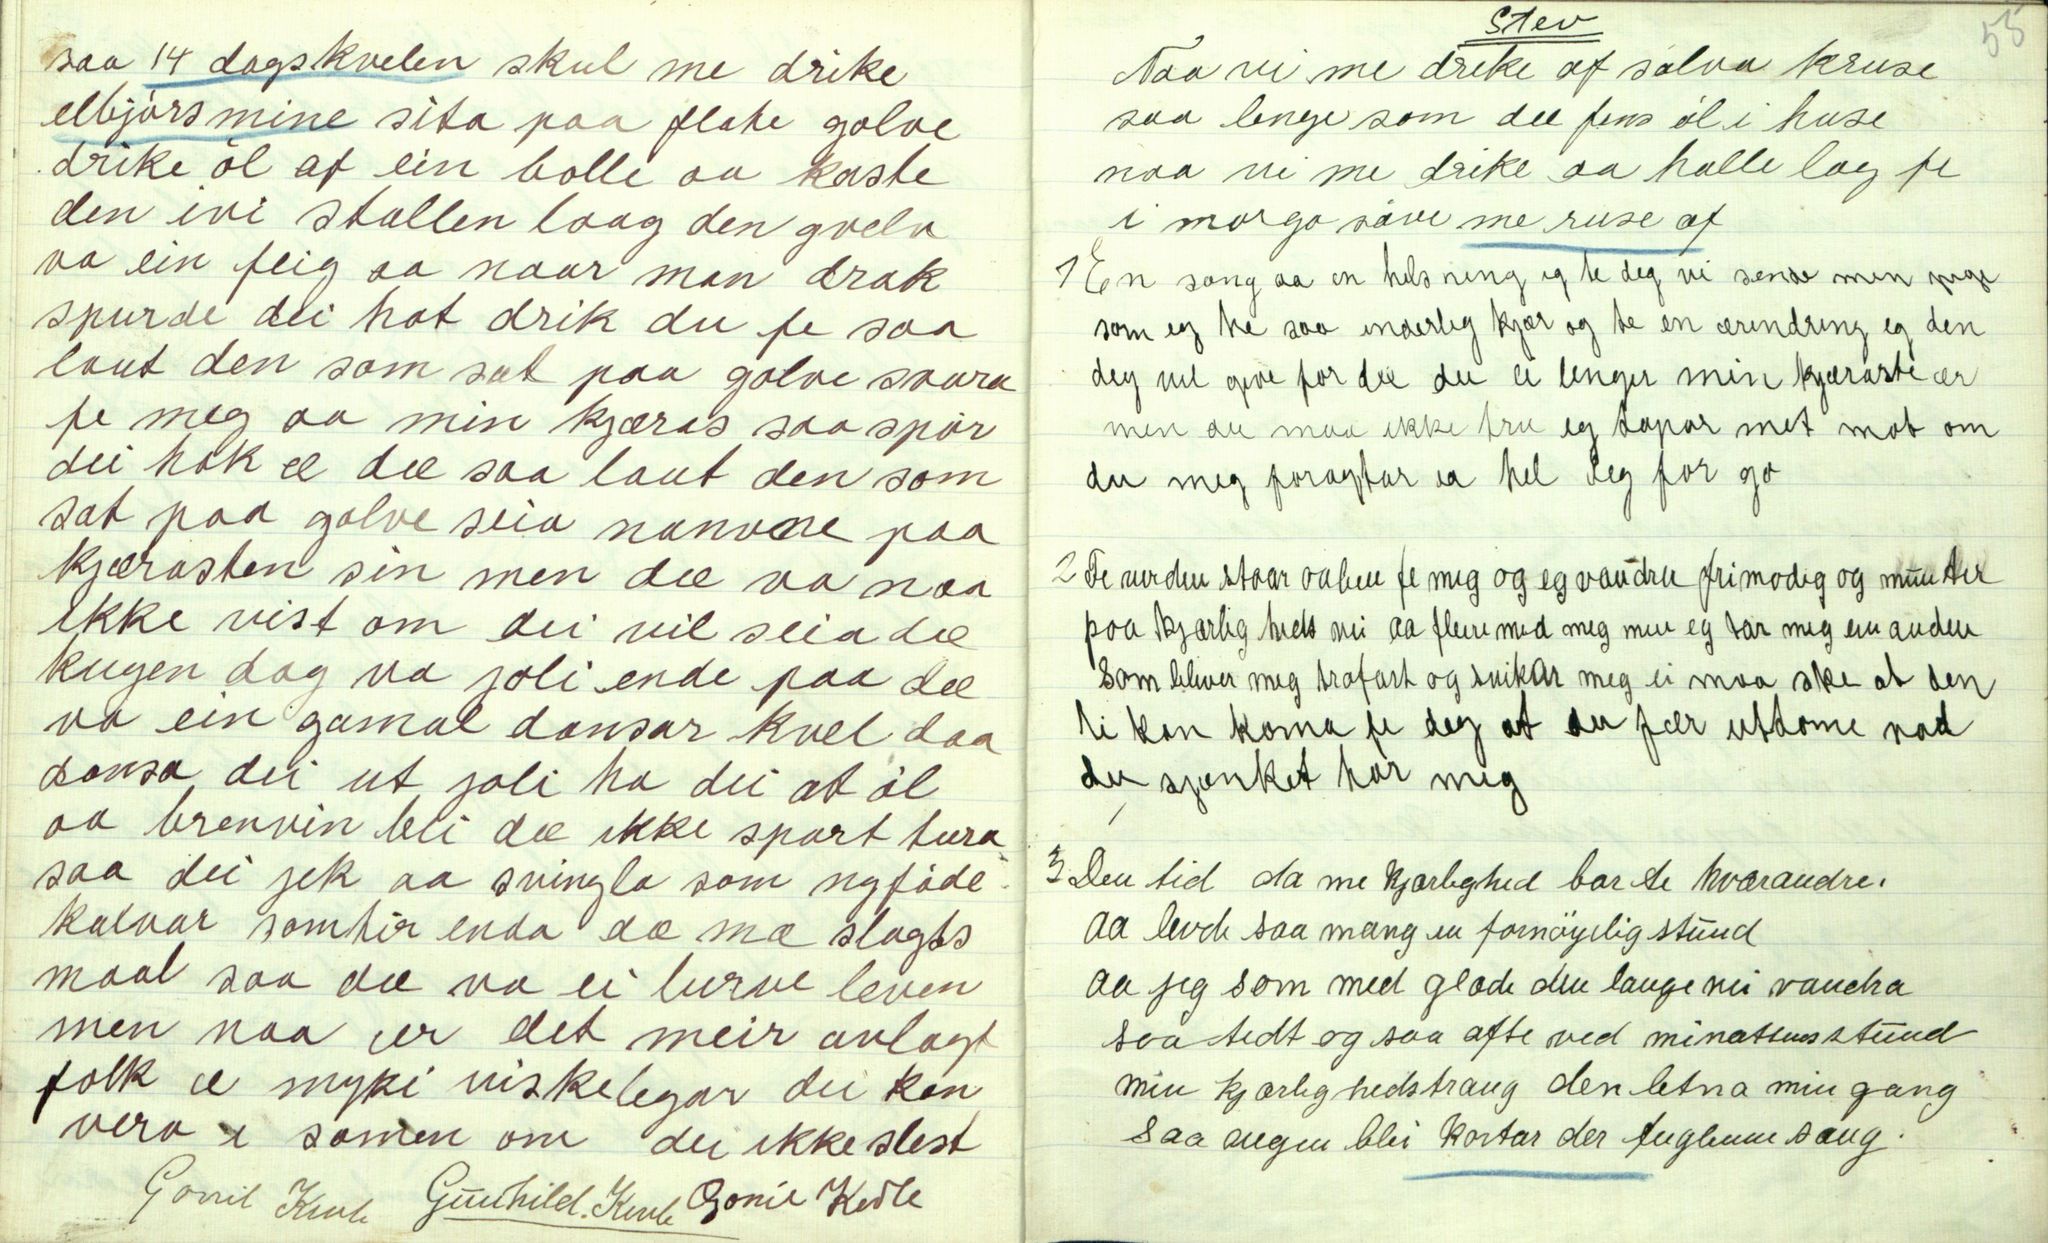 saa 14 dagskvelen skul me drike
elbjørsmine sita paa flate golve
drike øl af ein bolle aa kaste
den ivi stallen laag den gvelv
va ein feig aa naar man drak
spurde dei hot drik du fe saa
laut den som sat paa golve svara
fe meg aa min kjæras saa spør
dei hok æ dæ saa laut den som
sat paa golve seia navne paa
kjærasten sin men dæ va naa
ikke vist om dei vil seia dæ
kugen dag va joli ende paa dæ
va ein gamal dansar kvel daa
dansa dei ut joli ha dei at øl
aa brenvin blei dæ ikke spart tura
saa dei jek aa svingla som nyføde
kalvar somtir enda dæ mæ slagts
maal saa dæ va ei lurve leven
men naa er det meir avlagt
folk æ myki viskelegar dei kan
vera i samen om dei ikke slest
Gonil Kivle Gunhild. Kivle Gonil Kivle
55
Stev
Naa vi me drike af sølva kruse
saa lenge som dæ fins øl i huse
naa vi me drike aa halle lag fe
i morgo søve me ruse af
1 En sang aa en helsning eg te deg vi sende min pige
som eg he saa inderleg kjær og te en ærindring eg den
deg vil geve for dæ du ei lenger min kjæraste ær
men du maa ikke tru eg tapar met mot om
du meg foragtar ea hel deg for go
2 Te verden staar aaben fe meg og eg vandre frimodig og munter
paa kjærlig heds vei aa flere med meg men eg tar meg en anden
som bliver meg trofast og svikar meg ei maa ske at den
ti kan koma fe deg at du fær uttome vad
du sjænket har meg
3 Den tid da me kjærlighed bar te hværandre.
aa levde saa mang en fornøyelig stund
aa jeg som med glæde den lange vei vandra
saa tidt og saa ofte ved minattens stund
min kjærlighedstrang den letna min gang
saa vegen blei kortar der fuglenne sang.